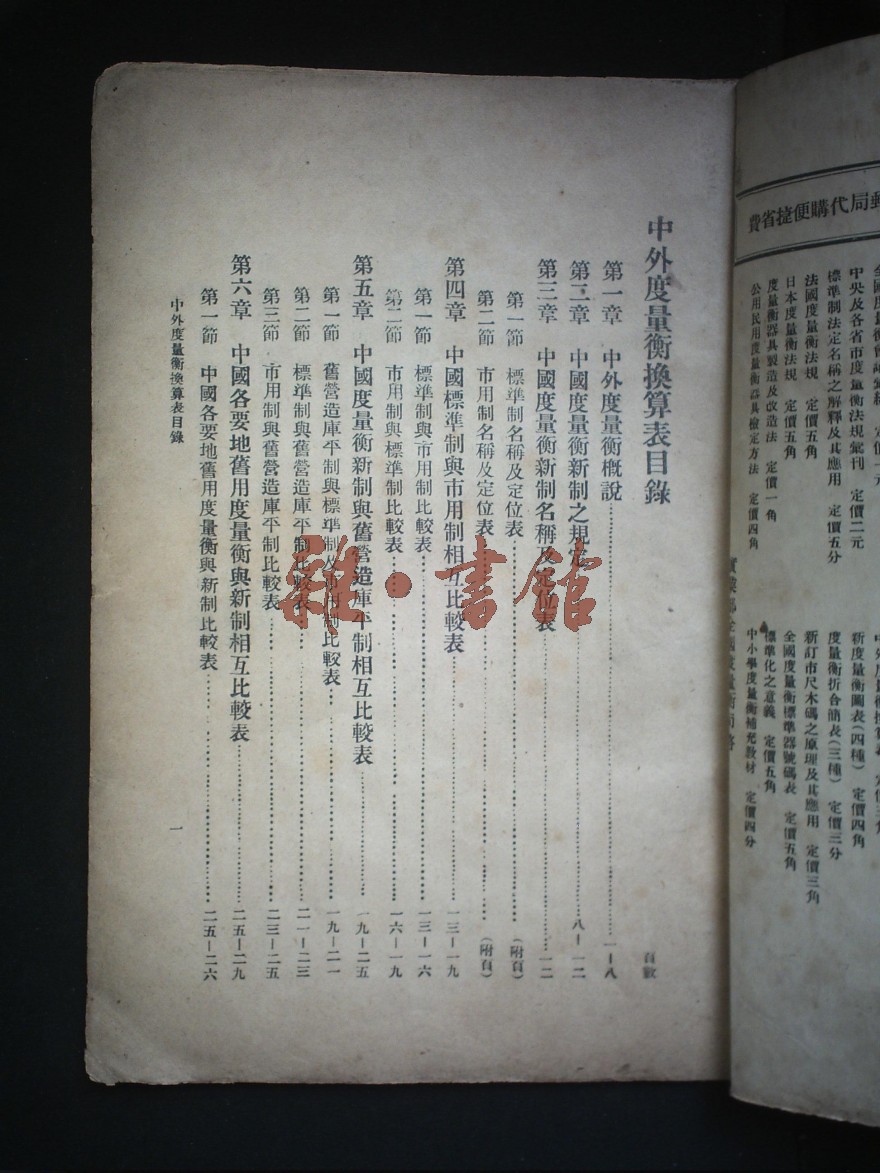 郵局代購便捷省費
中央及各省市度量衡法規彙刊 定價二元
標準制法定名稱之解釋及其應用 定價五分
法國度量衡法規 定價五角
日本度量衡法規 定價五角
度量衡器具製造及改造法 定價一角
公用民用度量衡器具檢定方法 定價四角
新度量衡圖表(四種) 定價四角
度量衡折合簡表(三種) 定價三分
新訂市尺木碼之原理及其應用 定價三角
全國度量衡標準器號碼表 定價五角
標準化之意義 定價五角
中小學度量衡補充教材 定價四分
中外度量衡換算表目錄
頁數
第一章 中外度量衡概說 一-八
第二章 中國度量衡新制之規定 八-一二
第三章 中國度量衡新制名稱及定位表 一二
第一節 標準制名稱及定位表 (附頁)
第二節 市用制名稱及定位表 (附頁)
第四章 中國標準制與市用制相互比較表 一三-一九
第一節 標準制與市用制比較表 一三-一六
第二節 市用制與標準制比較表 一六-一九
第五章 中國度量衡新制與舊營造庫平制相互比較表 一九-二五
第一節 舊營造庫平制與標準制及市用制比較表 一九-二一
第二節 標準制與舊營造庫平制比較表 二一-二三
第三節 市用制與舊營造庫平制比較表 二三-二五
第六章 中國各要地舊用度量衡與新制相互比較表 二五-二九
第一節 中國各要地舊用度量衡與新制比較表 二五-二六
中外度量衡換算表目錄
一
雜·書館